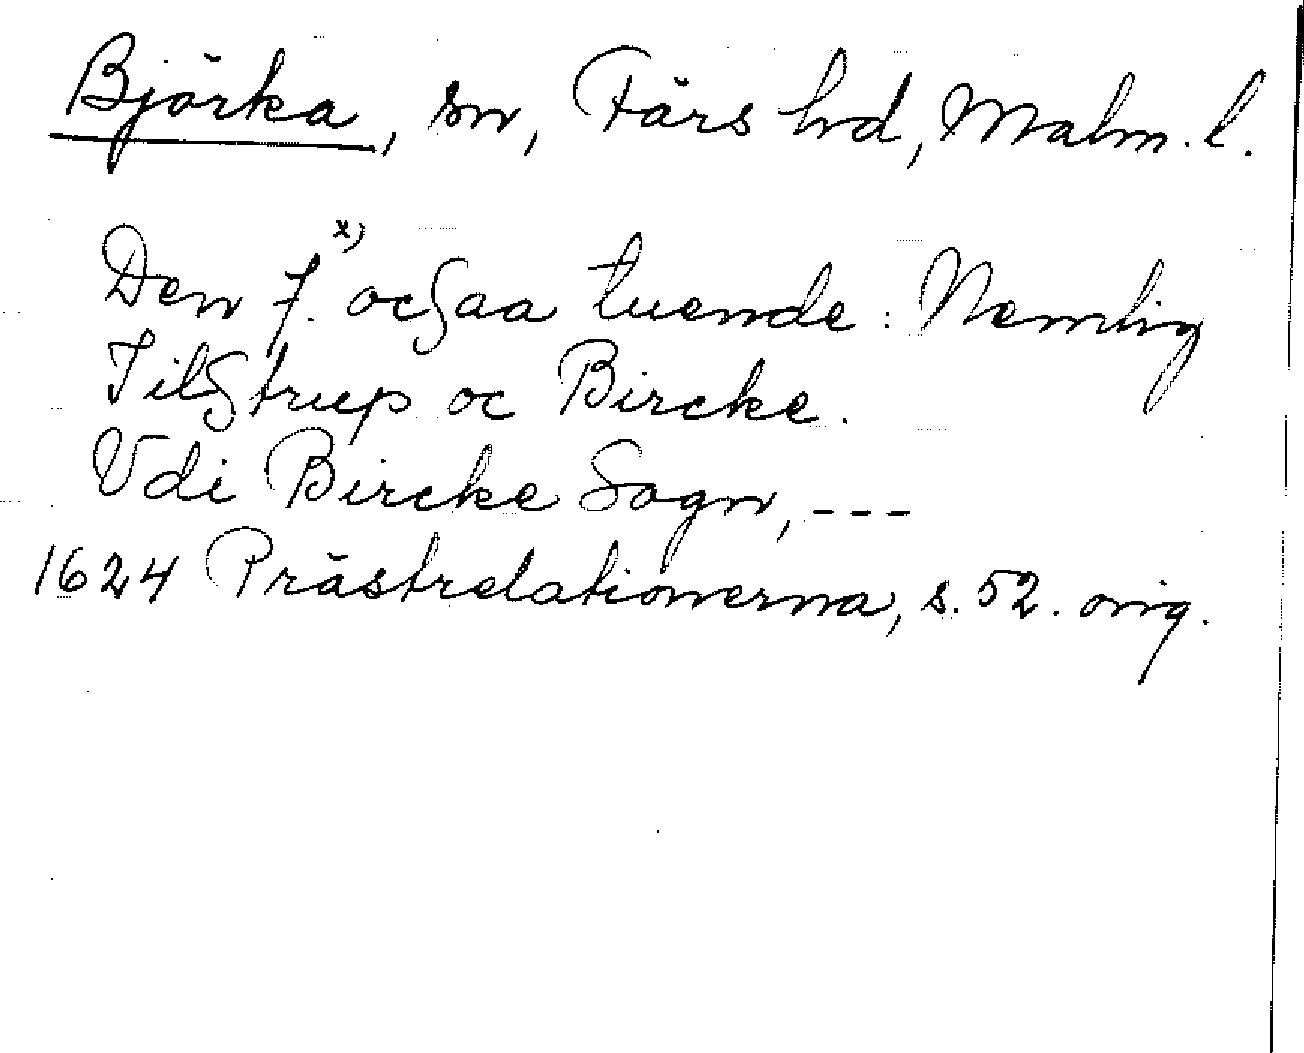 Björka, sn, Färs hd, Malm. l.
Den 7.x) ocsaa tuende: Nemlig
Tilstrup oc Bircke.
Vdi Bircke Sogn, ---
1624 Prästrelationerna, s. 52. orig.